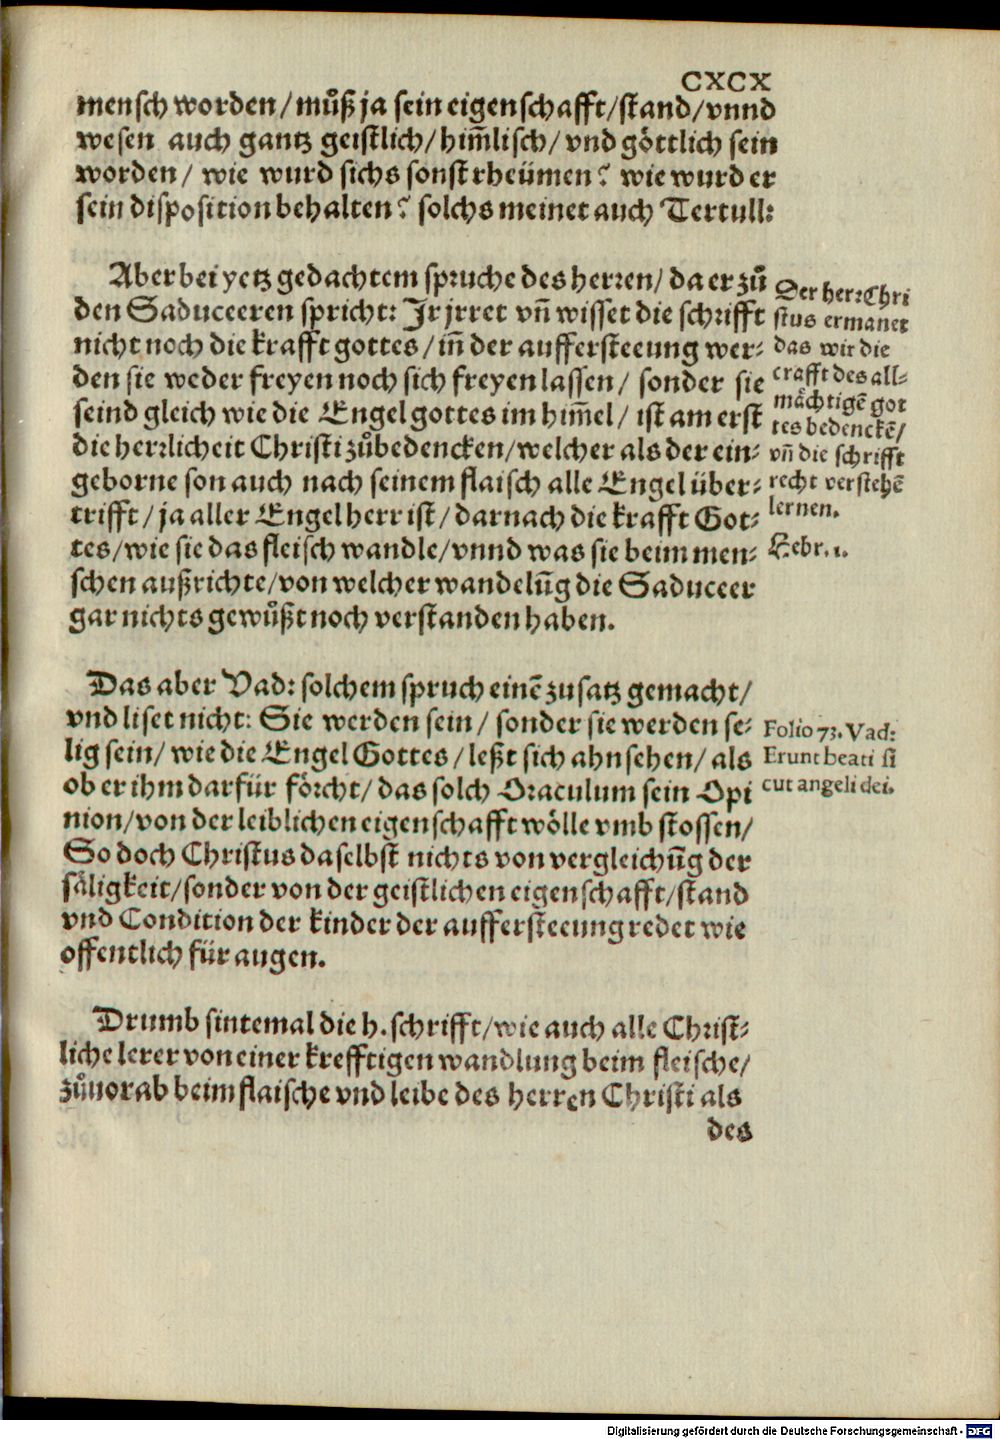 CXCX
mensch worden / můß ja sein eigenschafft / stand / vnnd
wesen auch gantz geistlich / him̃lisch / vnd göttlich sein
worden / wie wurd sichs sonst rheümen? wie wurd er
sein disposition behalten? solchs meinet auch Tertull:
Aber bei yetz gedachtem spruche des herren / da er zů
den Saduceeren spricht: Jr jrret vñ wisset die schrifft
nicht noch die krafft gottes / iñ der auffersteeung wer⸗
den sie weder freyen noch sich freyen lassen / sonder sie
seind gleich wie die Engel gottes im him̃el / ist am erst
die herrlicheit Christi zůbedencken / welcher als der ein⸗
geborne son auch nach seinem flaisch alle Engel über⸗
trifft / ja aller Engel herr ist / darnach die krafft Got⸗
tes / wie sie das fleisch wandle / vnnd was sie beim men⸗
schen außrichte / von welcher wandelũg die Saduceer
gar nichts gewůßt noch verstanden haben.
Der herr Chri
stus ermanet
das wir die
crafft des all⸗
mächtigẽ got
tes bedenckẽ /
vñ die schrifft
recht verstehẽ
lernen.
Hebr. 1.
Das aber Vad: solchem spruch einẽ zusatz gemacht /
vnd liset nicht: Sie werden sein / sonder sie werden se⸗
lig sein / wie die Engel Gottes / leßt sich ahnsehen / als
ob er ihm darfür förcht / das solch Oraculum sein Opi
nion / von der leiblichen eigenschafft wölle vmb stossen /
So doch Christus daselbst nichts von vergleichũg der
säligkeit / sonder von der geistlichen eigenschafft / stand
vnd Condition der kinder der auffersteeung redet wie
offentlich für augen.
Folio 73. Vad:
Erunt beati si
cut angeli dei.
Drumb sintemal die h. schrifft / wie auch alle Christ⸗
liche lerer von einer krefftigen wandlung beim fleische /
zůuorab beim flaische vnd leibe des herren Christi als
des
Digitalisierung gefördert durch die Deutsche Forschungsgemeinschaft - DFG